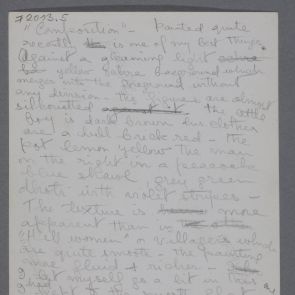 72013.5
"Composition" - Painted quite
recently is one of my best things
Against a gleaming light
yellow background which
merges into the foreground without
any division - the figures are almost
silhouetted the little
boy is dark brown his clothes
are a dull brick red - the
pot lemon yellow the man
on the right in a peacock
blue shawl grey green
dhoti with violet stripes -
The texture is more
apparent than in
"Hill women" or Villagers which
are quite smooth - the painting
more fluid & richer -
I let myself go a bit in this